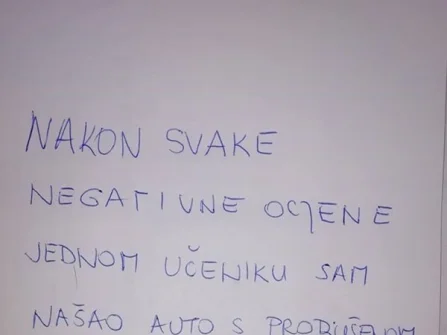 NAKON SVAKE
NEGATIVNE OCJENE
JEDNOM UČENIKU SAM
NAŠAO AUTO S PROBUŠENOM